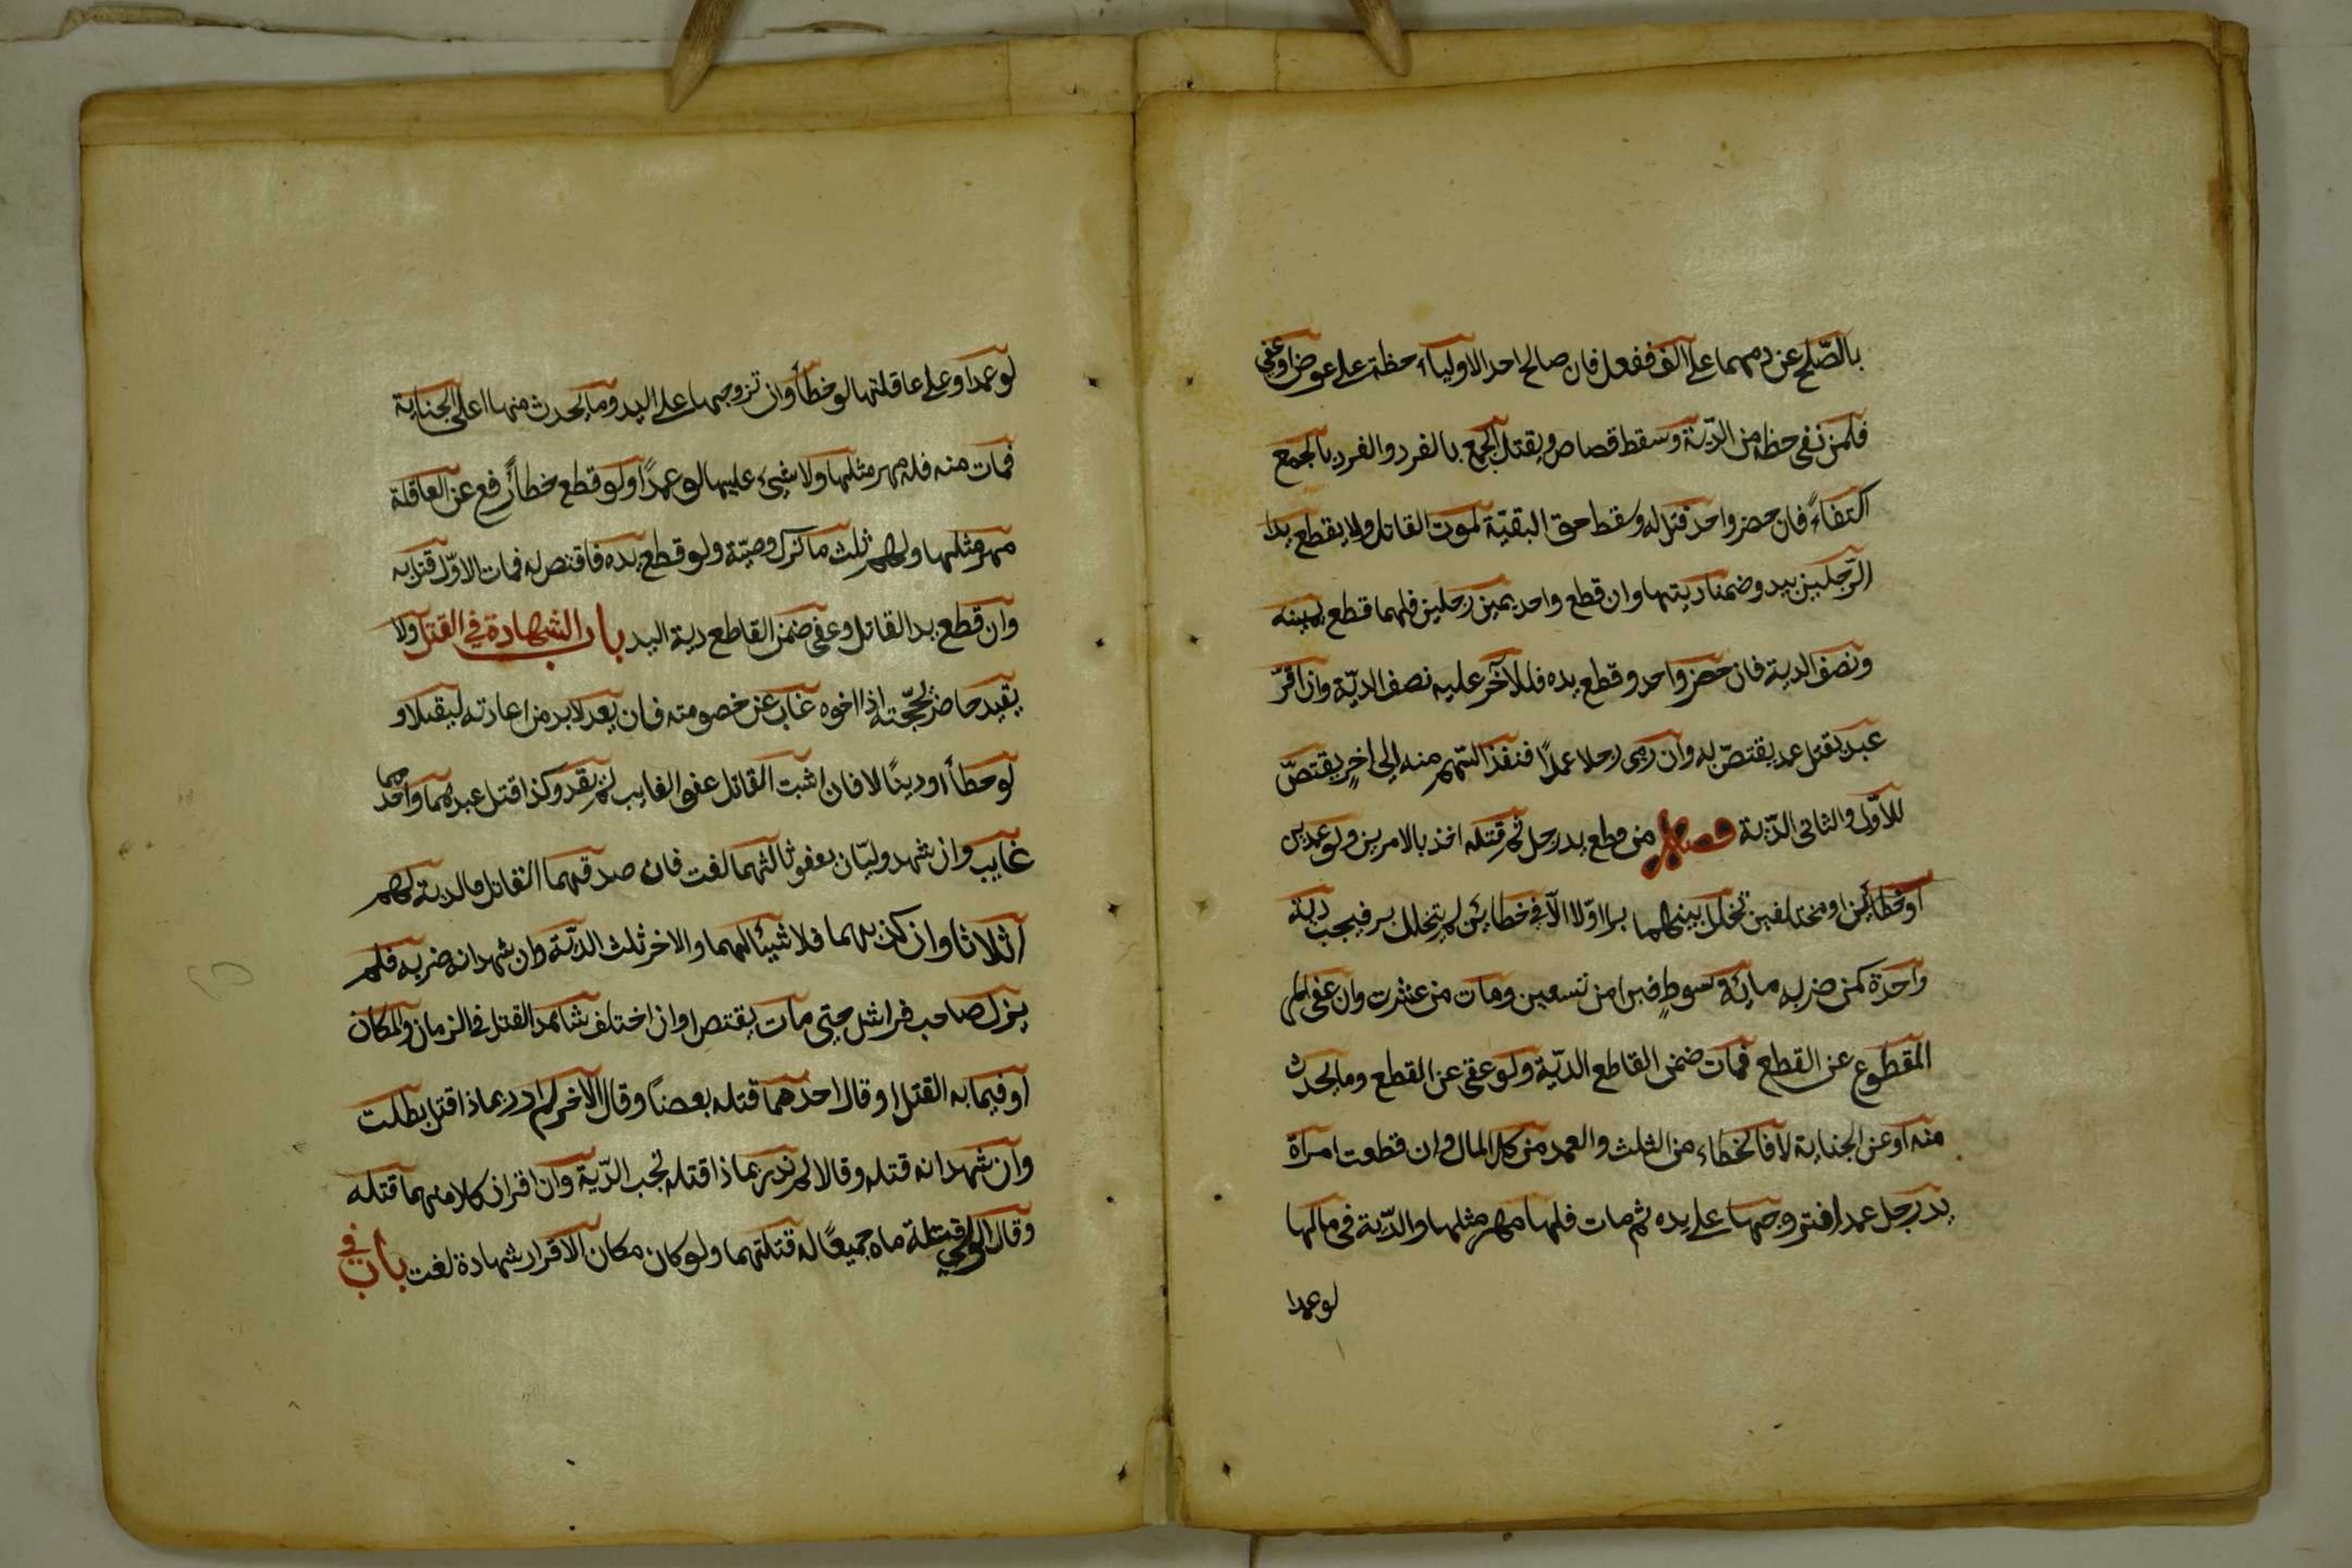 بالصّلح عن دمهما على الف ففعل فان صالح احد الاولياء حظه على عوض او عفى
فلمن نفى حظه من الدّية وسقط قصاص ويقتل الجمع بالفرد والفرد بالجمع
اكتفاءً فان حضر واحد قتل له وسقط حق البقيّة كموت القاتل ولا يقطع يدا
الرّجلين بيد وضمنا ديتها وان قطع واحد يمين رجلين فلهما قطع يمينه
ونصف الدية فان حضر واحد وقطع يده فللاخر عليه نصف الديّة وان اقرّ
عبد بقتل عمد يقتصّ به وان رمى رجلا عمداً فنفذ السّهم منه إلى اخرٍ يقتصّ
للاوّل والثانى الدّية فصل من قطع يد رجل ثم قتله اخذ بالامرين ولو عمدين
او خطائين او مختلفين تخلل بينهما برا اوّلا الاّ فى خطايئن لم يتخلل بر فيجب دية
واحدة كمن ضربه مائة سوطٍ فبرا من تسعين ومات من عشرة وان عفى
المقطوع عن القطع فمات ضمن القاطع الديّة ولو عفى عن القطع وما يحدث
منه او عن الجناية لا فالخطاء من الثلث والعمد من كل المال وان قطعت امراة
يد رجل عمدا فتزوجها على يده ثم مات فلها مهر مثلها والدّية فى مالها
لو عمدا
لو عمدا وعلى عاقلتها لو خطأً وان تزوجها على اليد وما يحدث منها اعلى الجناية
فمات منه فله مهر مثلها ولا شيء عليها لو عمداً ولو قطع خطأً رفع عن العاقلة
مهر مثلها ولهم ثلث ما ترك وصيّة ولو قطع يده فاقتص له فمات الاوّل قتل به
وان قطع يد القاتل وعفى ضمن القاطع دية اليد باب الشهادة في القتل ولا
يقيد حاضر بحجّته اذا اخوه غاب عن خصومته فان يعد لا بد من اعادته ليقتلا و
لو خطأ او ديناً لا فان اثبت القاتل عفو الغايب لم يقد وكذا قتل عبدهما واحدهما
غايب وان شهد وليّان بعفو ثالثهما لغت فان صدقهما القاتل فالدية لهم
اثلاثا وان كذبهما فلا شيئا لهما والاخر ثلث الديّة وان شهد انه ضربه فلم
يزل صاحب فراش حتى مات يقتص وان اختلف شاهدا القتل في الزمان والمكان
او فيما به القتل او قال احدهما قتله بعصاً وقال الاخر لم ادر بماذا قتل بطلت
وان شهد انه قتله وقالا لم ندر بماذا قتله تجب الدّية وان اقرا ان كلا منهما قتله
وقال الولي قتلتماه جميعاً له قتلهما ولو كان مكان الاقرار شهادة لغت باب في